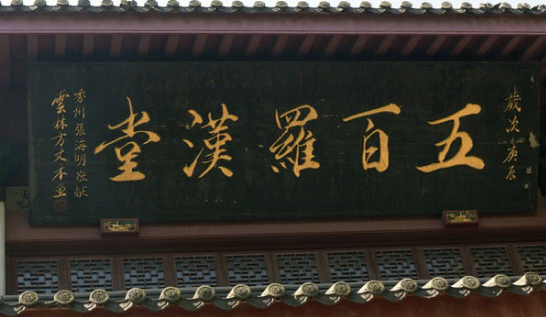 歲次庚辰
五百羅漢堂
秀州張海明敬献
雲林方丈木魚